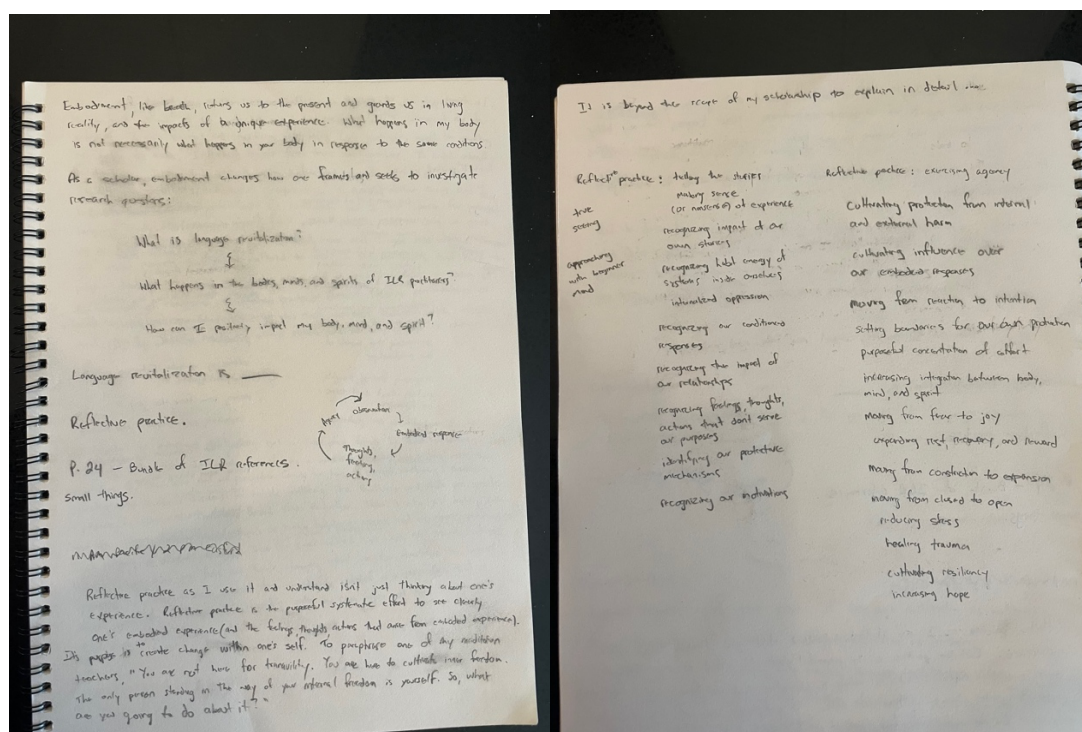 Embodiment, like breath, links us to the present and grounds us in living
reality, and the impacts of a unique experience. What happens in my body
is not necessarily what happens in your body in response to the same conditions.
As a scholar, embodiment changes how one frames and seeks to investigate
research questions:
What is language revitalization?
What happens in the bodies, minds, and spirits of ILR practitioners?
How can I positively impact my body, mind, and spirit?
Language revitalization is ____
Reflective practice.
observation
Embodied response
Thoughts, feelings, actions
impact
P. 24 - Bundle of ILR references.
small things.
Reflective practice as I use it and understand isn't just thinking about one's
experience. Reflective practice is the purposeful systematic effort to see clearly
one's embodied experience (and the feelings, thoughts, actions that arise from embodied experience).
Its purpose is to create change within one's self. To paraphrase one of my meditation
teachers, "You are not here for tranquility. You are here to cultivate inner freedom.
The only person standing in the way of your internal freedom is yourself. So, what
are you going to do about it?"
It is beyond the scope of my scholarship to explain in detail
Reflective practice: telling the stories
making sense
(or nonsense) of experience
recognizing impact of our
own stories
recognizing habit energy of
systems inside ourselves
internalized oppression
recognizing our conditioned
responses
recognizing the impact of
our relationships
recognizing feelings, thoughts,
actions that don't serve
our purposes
identifying our protective
mechanisms
recognizing our motivations
true
seeing
approaching
with beginner
mind
Reflective practice: exercising agency
cultivating protection from internal
and external harm
cultivating influence over
our embodied responses
moving from reaction to intention
setting boundaries for our own protection
purposeful concentration of effort
increasing integration between body,
mind, and spirit
moving from fear to joy
expanding rest, recovery, and reward
moving from constriction to expansion
moving from closed to open
reducing stress
healing trauma
cultivating resiliency
increasing hope